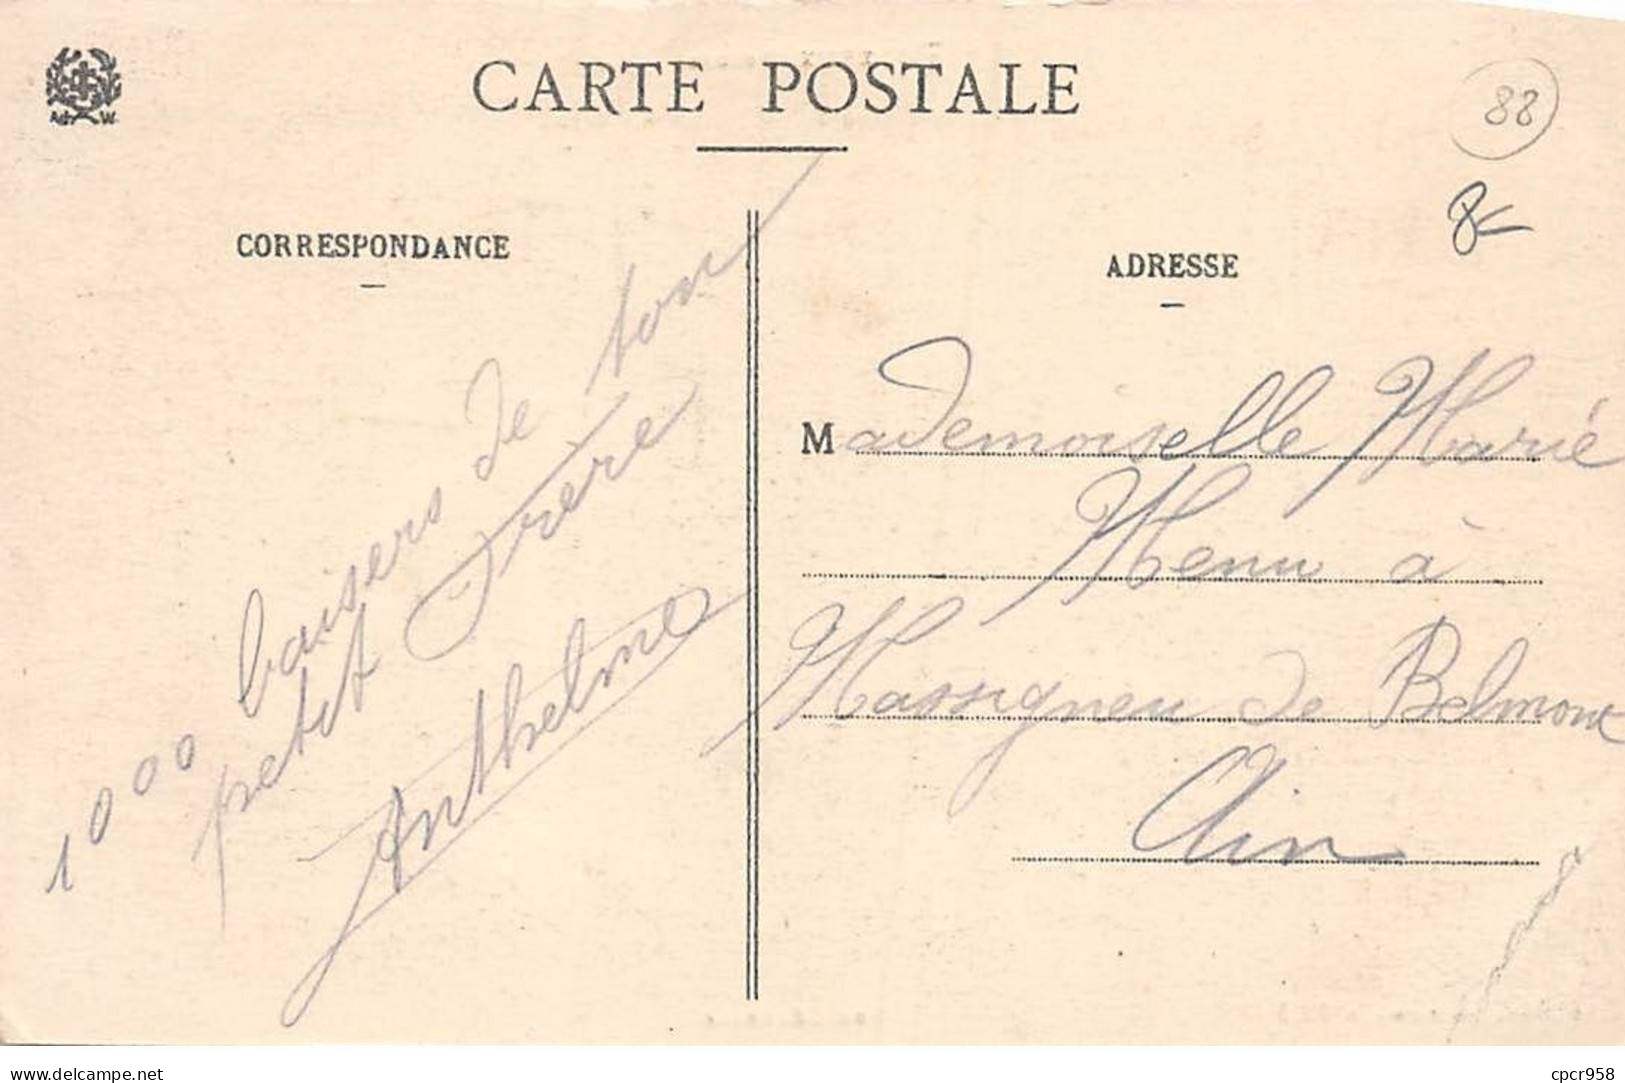 CARTE POSTALE
88
8€
CORRESPONDANCE
ADRESSE
1000 baisers de ton
petit Frère
Anthelme
Mademoiselle Marie
Menu à
Massignieu de Belmont
Ain
www.delcampe.net
cpcr958